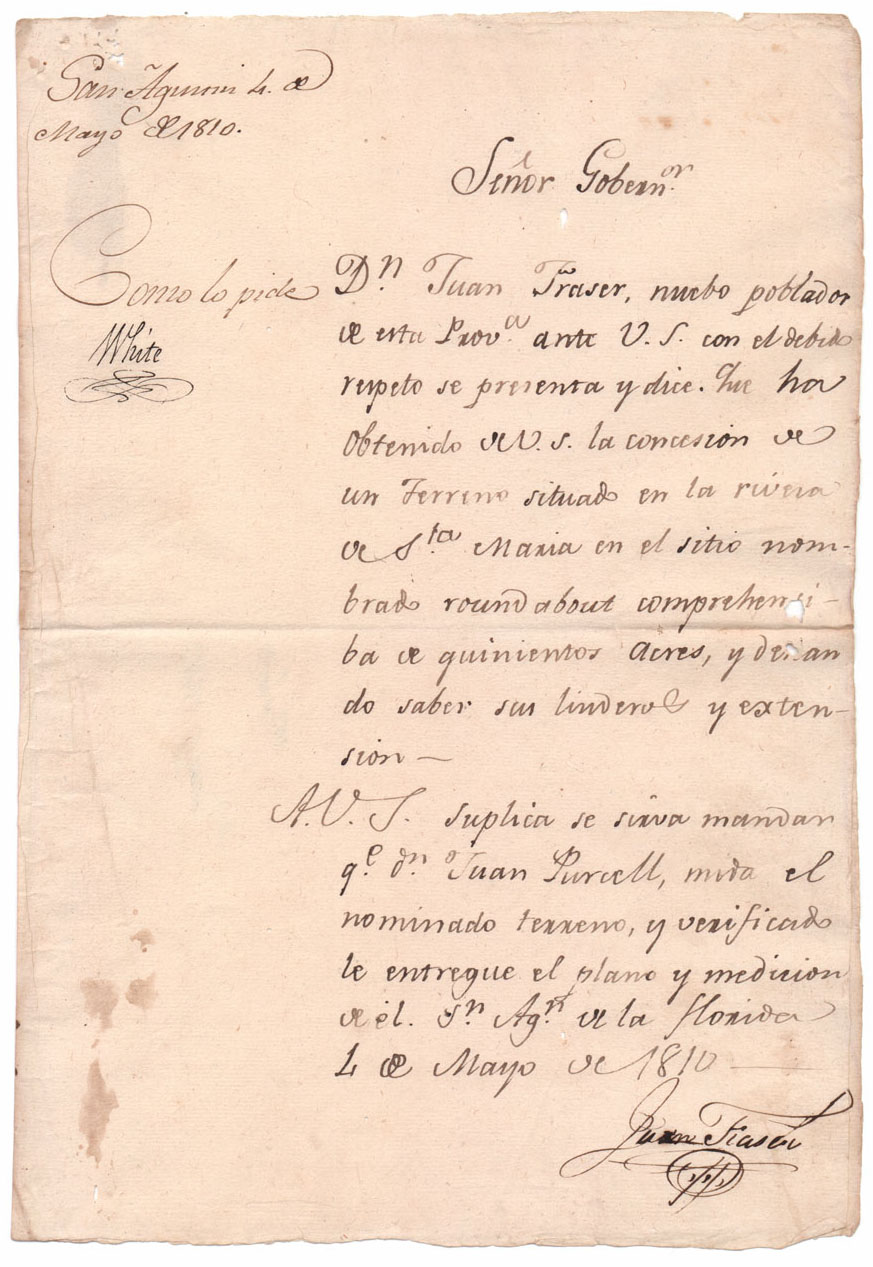 San Agustin 4. de
Mayo de 1810.
Como lo pide
White
Señor Gobern.or
D.n Juan Fraser, nuebo poblador
de esta Prov.a ante V. S. con el debido
respeto se presenta y dice. Que ha
obtenido de V. S. la concesion de
un Terreno situado en la rivera
de S.ta Maria en el sitio nom-
brado round about comprehensi-
ba de quinientos acres, y desean
do saber sus linderos y exten-
sion —
A. V. S. suplica se sirva mandar
q.e d.n Juan Purcell, mida el
nominado terreno, y verificado
le entregue el plano y medicion
de él. S.n Ag.n de la florida
4 de Mayo de 1810 —
Juan Fraser